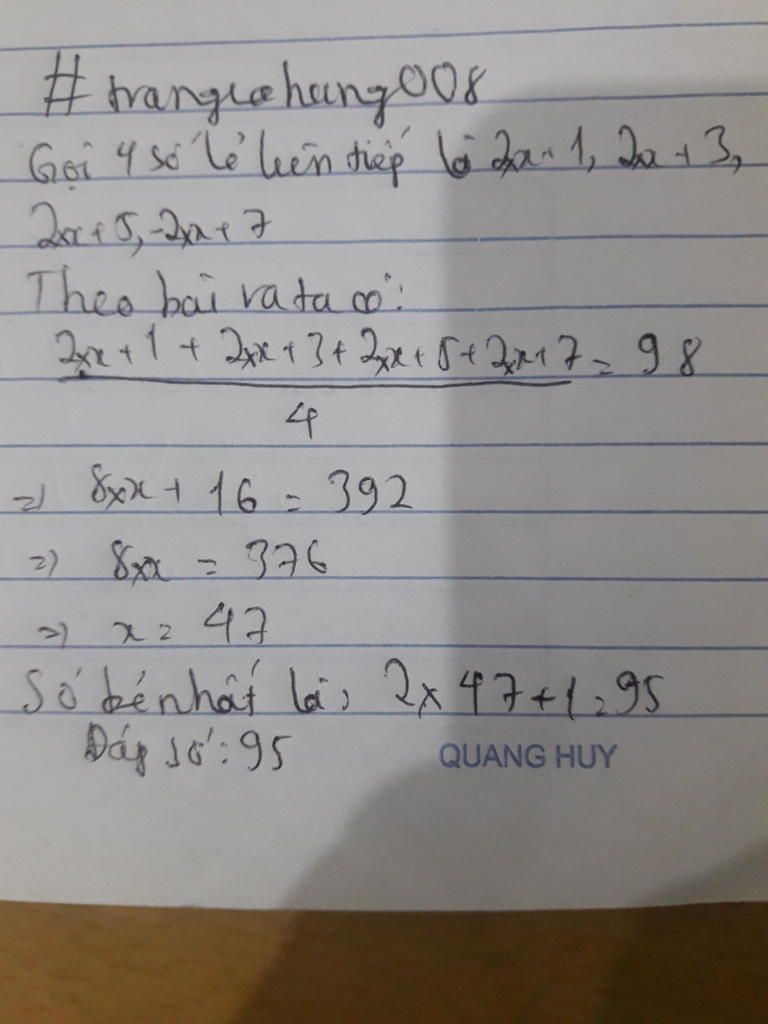 #trangiahung008
Gọi 4 số lẻ liên tiếp là 2x+1, 2x+3,
2x+5, 2x+7
Theo bài ra ta có:
2xx+1+2xx+3+2xx+5+2xx+7 = 98
4
=) 8xx+16 = 392
=) 8xx = 376
=) x = 47
Số bé nhất là: 2x47+1=95
Đáp số: 95
QUANG HUY